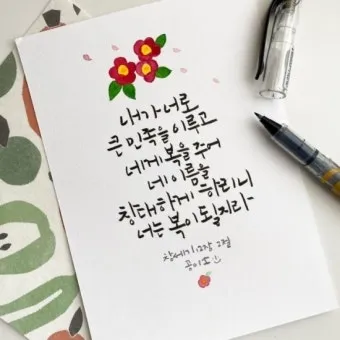 내가 너로
큰 민족을 이루고
네게 복을 주어
네 이름을
창대하게 하리니
너는 복이 될지라-
창세기 12장 2절